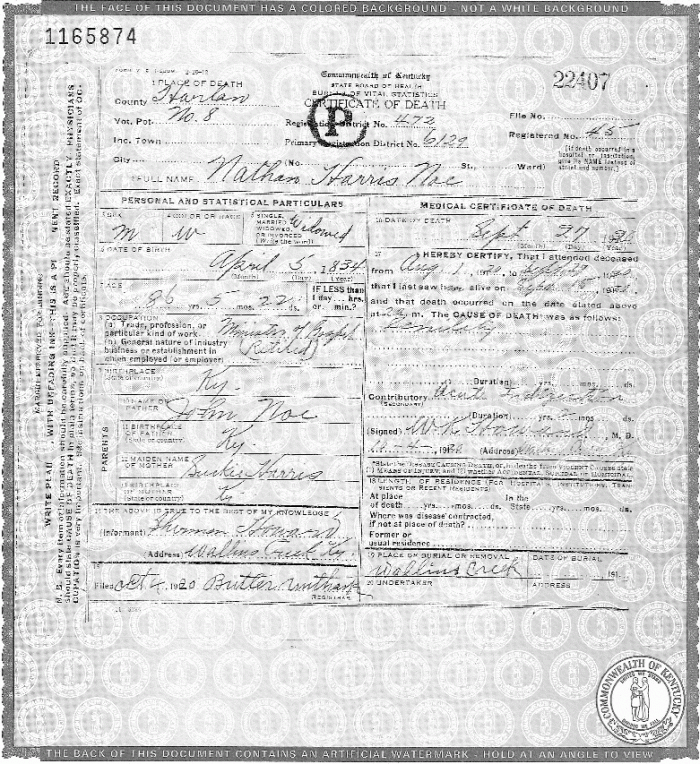 THE FACE OF THIS DOCUMENT HAS A COLORED BACKGROUND - NOT A WHITE BACKGROUND
1165874
1 PLACE OF DEATH
County Harlan
Vot. Pct. No. 8
Inc. Town
City (No. St., Ward)
Commonwealth of Kentucky
STATE BOARD OF HEALTH
BUREAU OF VITAL STATISTICS
CERTIFICATE OF DEATH
P
Registration District No. 472
Primary Registration District No. 6129
22407
File No.
Registered No. 45
[If death occurred in a hospital or institution, give its NAME instead of street and number.]
2 FULL NAME Nathan Harris Noe
PERSONAL AND STATISTICAL PARTICULARS
3 SEX M
4 COLOR OR RACE W
5 SINGLE, MARRIED, WIDOWED, OR DIVORCED (Write the word) Widowed
6 DATE OF BIRTH
April 5, 1834
(Month) (Day) (Year)
7 AGE
86 yrs. 5 mos. 22 ds.
IF LESS than 1 day... hrs. or min.?
8 OCCUPATION
(a) Trade, profession, or particular kind of work Minister of Gospel
(b) General nature of industry business or establishment in which employed (or employer) (Retired)
9 BIRTHPLACE
(State or country) Ky.
PARENTS
10 NAME OF FATHER John Noe
11 BIRTHPLACE OF FATHER
(State or country) Ky.
12 MAIDEN NAME OF MOTHER Harris
13 BIRTHPLACE OF MOTHER
(State or country) Ky
14 THE ABOVE IS TRUE TO THE BEST OF MY KNOWLEDGE
(Informant) Sherman Howard
(Address) Wallins Creek Ky.
15
Filed Oct 1920 Butler
REGISTRAR
MEDICAL CERTIFICATE OF DEATH
16 DATE OF DEATH
Sept 27 1920
(Month) (Day) (Year)
17 I HEREBY CERTIFY, That I attended deceased
from Aug 1, 1920, to Sept 1920
that I last saw h alive on Sept 1920
and that death occurred on the date stated above
at m. The CAUSE OF DEATH was as follows:
Senility
(Duration) yrs. mos. ds.
Contributory Acute
(Secondary)
(Duration) yrs. mos. ds.
(Signed) W.K. Howard, M. D.
(Address)
*State the DISEASE CAUSING DEATH, or, in deaths from VIOLENT CAUSES state (1) MEANS OF INJURY, and (2) whether ACCIDENTAL, SUICIDAL or HOMICIDAL.
18 LENGTH OF RESIDENCE (FOR HOSPITALS, INSTITUTIONS, TRANSIENTS OR RECENT RESIDENTS)
At place of death yrs. mos. ds. In the State yrs. mos. ds.
Where was disease contracted, if not at place of death?
Former or usual residence
19 PLACE OF BURIAL OR REMOVAL Wallins Creek
DATE OF BURIAL 191
20 UNDERTAKER
ADDRESS
MARGIN RESERVED FOR BINDING
COMMONWEALTH OF KENTUCKY
THE BACK OF THIS DOCUMENT CONTAINS AN ARTIFICIAL WATERMARK - HOLD AT AN ANGLE TO VIEW